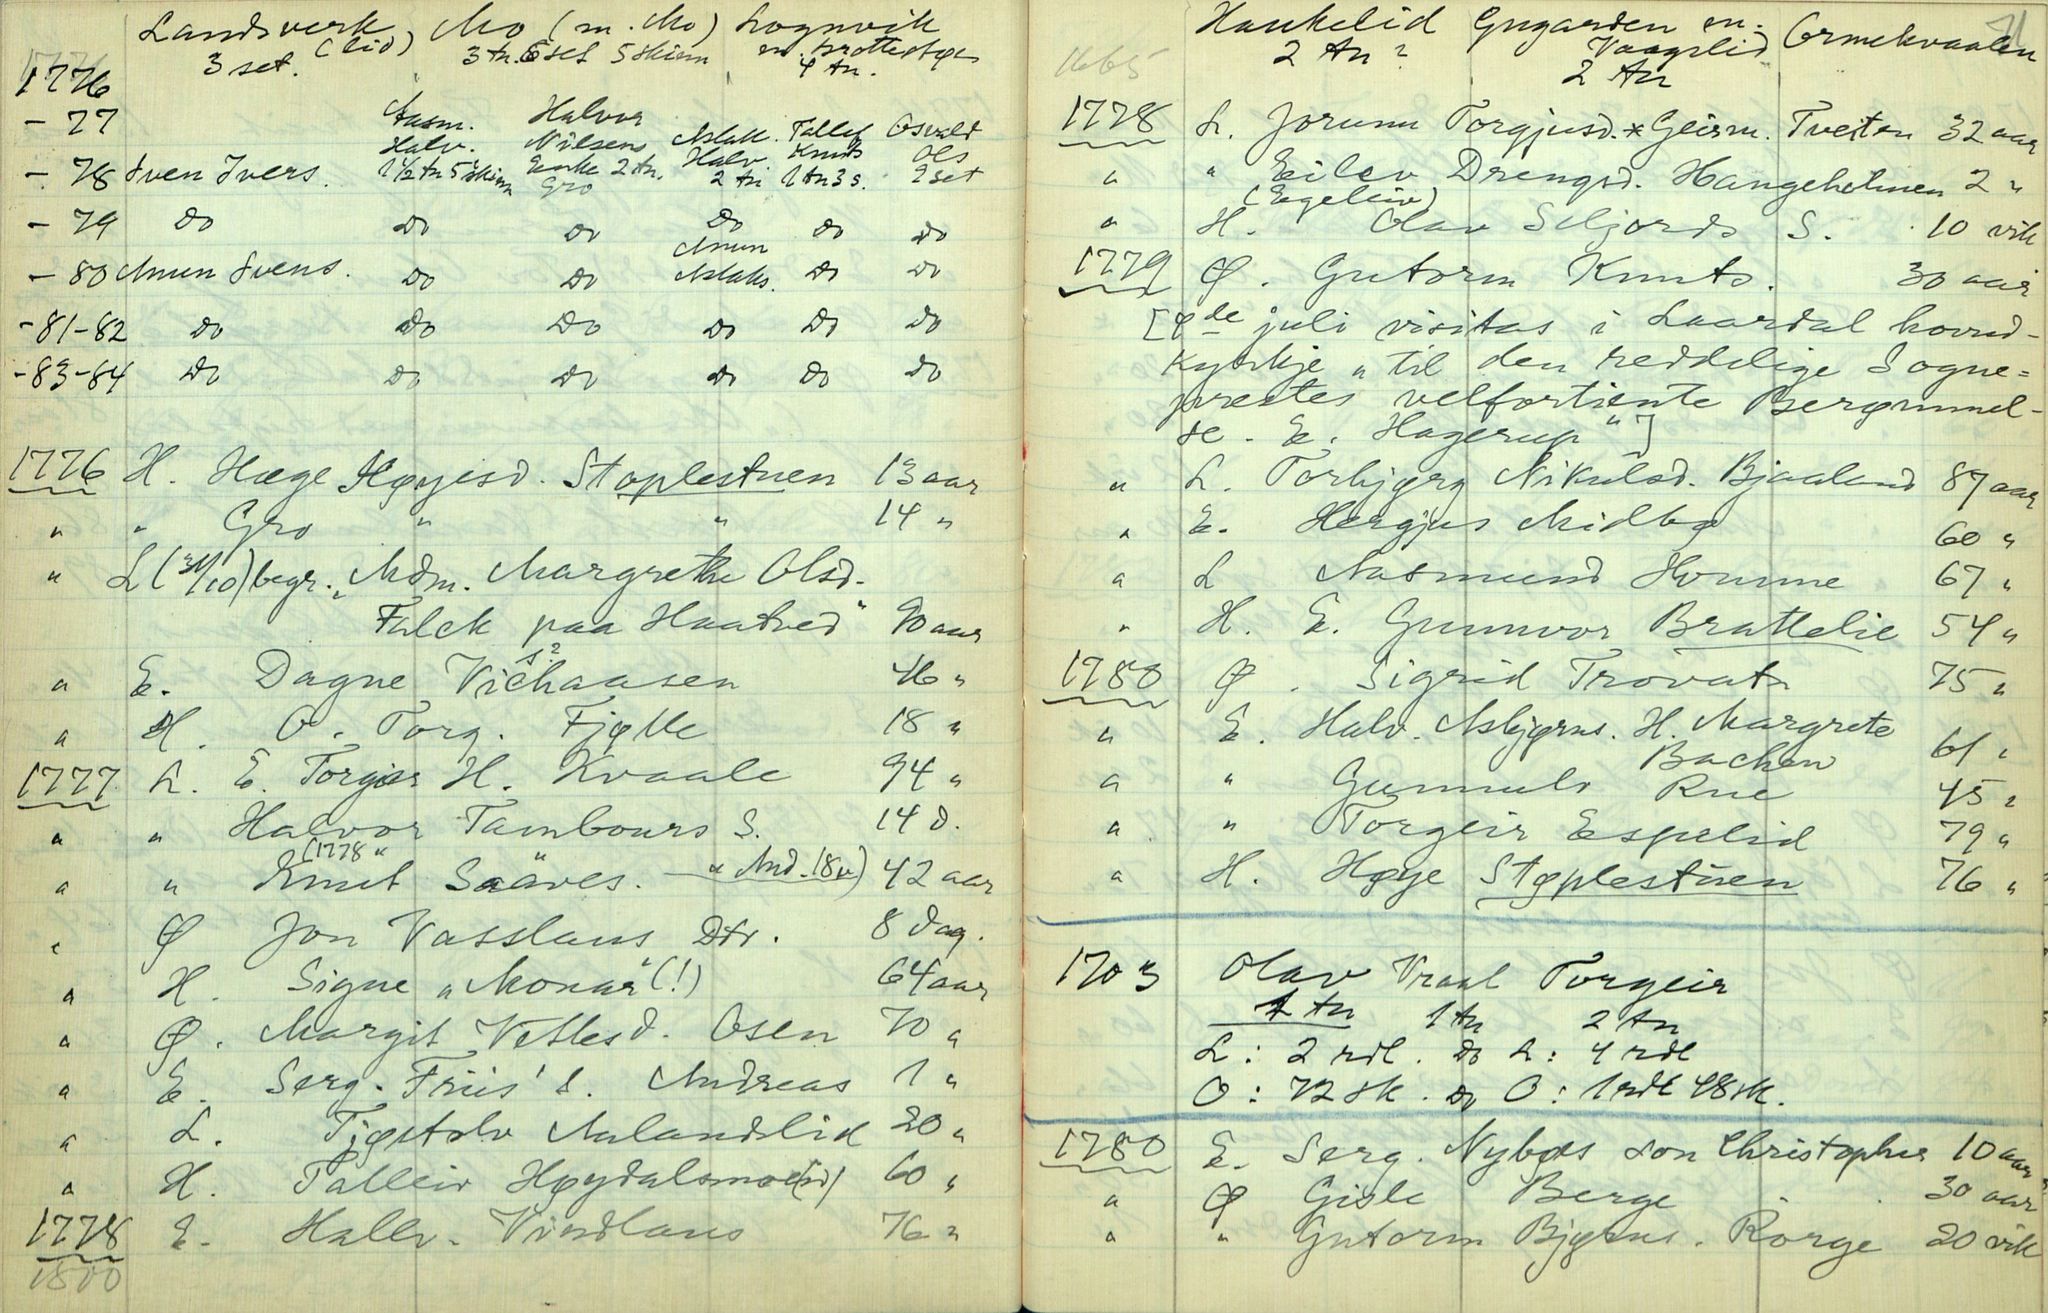 Landsverk (lid) Mo (m. Mo) Lognvik
3 set. 3 tn. 6 set 5 skinn 4 tn.
1776
- 77 Aasm. Halv. Halvor Nilsens Aslak Tallef Knuts Osvald Ols
- 78 Sven Ivers. 1½ tn 5 skinn Enke 2 tn. Gro Halv. 2 tn 1 tn 3 s. 2 set
- 79 Do Do Do Do Do Do
- 80 Anun Svens. Do Do Anun Aslaks. Do Do
- 81-82 Do Do Do Do Do Do
- 83-84 Do Do Do Do Do Do
1776 H. Hæge Høyesd. Støplestuen 13 aar
" " Gro " " 14 "
" L (31/10) begr. "Mdm. Margrethe Olsd.
Falck paa Haatved" 90 aar
" E. Dagne Vichaasen 46 "
s?
" H. O. Torg. Fjølle 18 "
1777 L. E. Torgjer H. Kvaale 94 "
" " Halvor Tambours S. 14 d.
(1778 " " " And. 18 v)
" " Knut Saaves. 42 aar
" Ø Jon Vasslaus Dtr. 8 dag.
" H. Signe "Monar" (!) 64 aar
" Ø. Margit Vetlesd. Osen 70 "
" E. Serg. Friis' s. Andreas 1 "
" L. Tjøstolv Aalandslid 20 "
" H. Talleiv Høydalsmo(en) 60 "
1778 E. Hallv. Vindlaus 76 "
1800
Haukelid Gygarden m. Vaagslid Ormekvaalen
1665 2 tn ? 2 tn
71
1778 L. Jorunn Torgjusd. * Geirm. Tveiten 32 aar
" " Eilev Drengsd. Hangeholmen 2 "
(Egeleiv)
" H. Olav Seljords S. 10 vik
1779 Ø. Gutorm Knuts. 30 aar
[8de juli visitas i Laardal hovud-
kyrkje "til den reddelige Sogne=
prestes velfortiente Berømmel-
se. E. Hagerup"]
" L. Torbjørg Nikulsd. Bjaaland 87 aar
" E. Hergjus Midbø 60 "
" L Aasmund Homme 67 "
" H. E. Gunnvor Brattelie 54 "
1780 Ø. Sigrid Trovatn 75 "
" E. Halv. Asbjørns. H. Margrete
Bachen 61 "
" " Gunnulv Rue 45 "
" " Torgeir Espelid 79 "
" H. Høye Støplestuen 76 "
1703 Olav Vraal Torgeir
1 tn 1 tn 2 tn
L: 2 rdl. Do L: 4 rdl
O: 72 sk. Do O: 1 rdl 48 sk.
1780 E. Serg. Nybøes son Christopher 10 aar
" Ø Gisle Berge 30 aar
" " Gutorm Bjørns. Rorge 20 vik